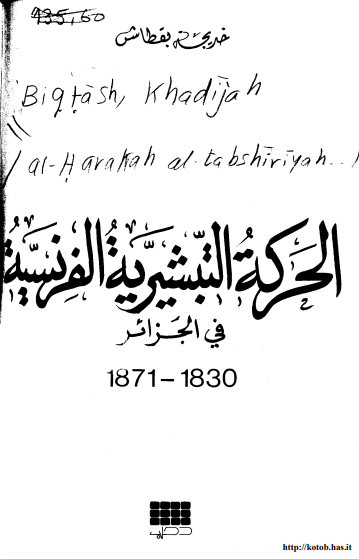 935,60
خديجة بقطاش
Biqṭāsh, Khadījah
al-Ḥarakah al-tabshīrīyah...
الحَركة التبشيريَّة الفرنسيَّة
في الجَزائر
1830 – 1871
دحلب
http://kotob.has.it